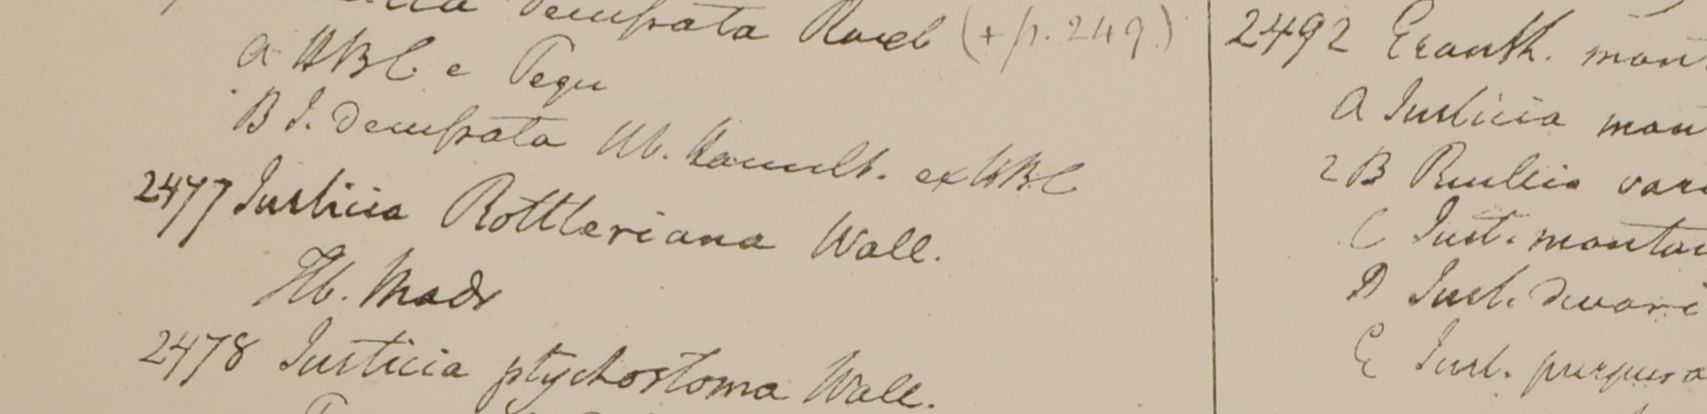 decussata Roxb (+ p. 249.)
a HBC e Pegu
B J. decussata Hb. Hamilt. ex HBC
2477 Justicia Rottleriana Wall.
Hb. Madr
2478 Justicia ptychostoma Wall.
2492 Eranth. mon
a Justicia mon
2 B Ruellia var
C Just. montan
D Just. devari
E Just. purpura